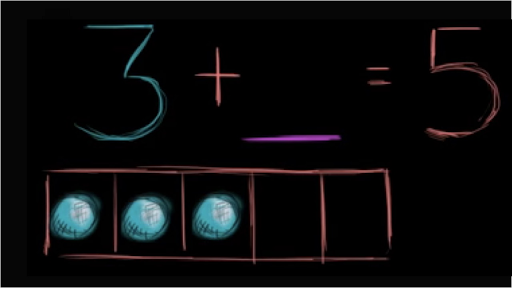 3 + __ = 5